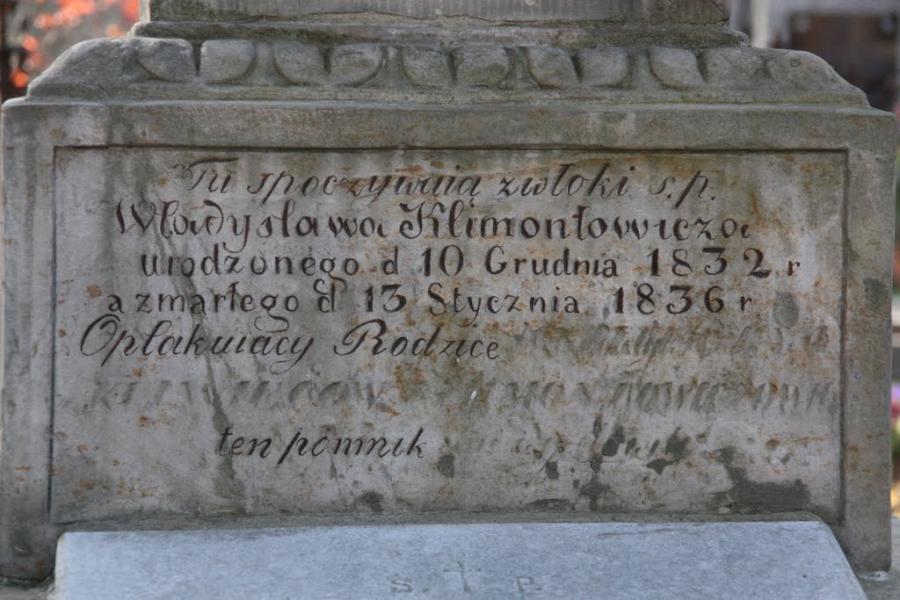 Tu spoczywają zwłoki s.p.
Władysława Klimontowicza
urodzonego d 10 Grudnia 1832 r
a zmarłego d 13 Stycznia 1836 r
Opłakuiący Rodzice
ten pomnik
S † P